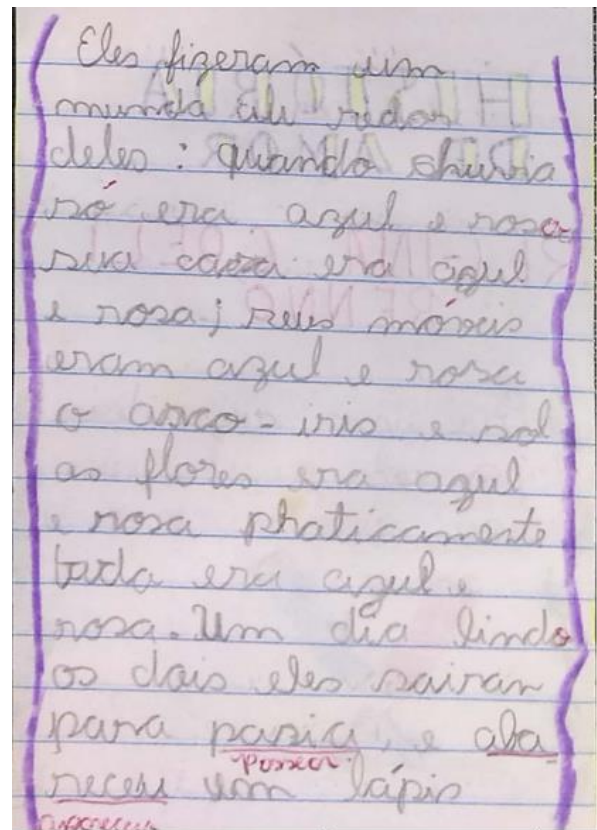 Eles fizeram um
munda au redor
deles : quando chuvia
só era azul e rosa
sua casa era azul
e rosa; seus móveis
eram azul e rosa
o arco-iris e sol
as flores era azul
e rosa phaticamente
tuda era azul e
rosa. Um dia lindo
os dois eles sairan
para pasia, e aba
passear
receu um lápis
apareceu